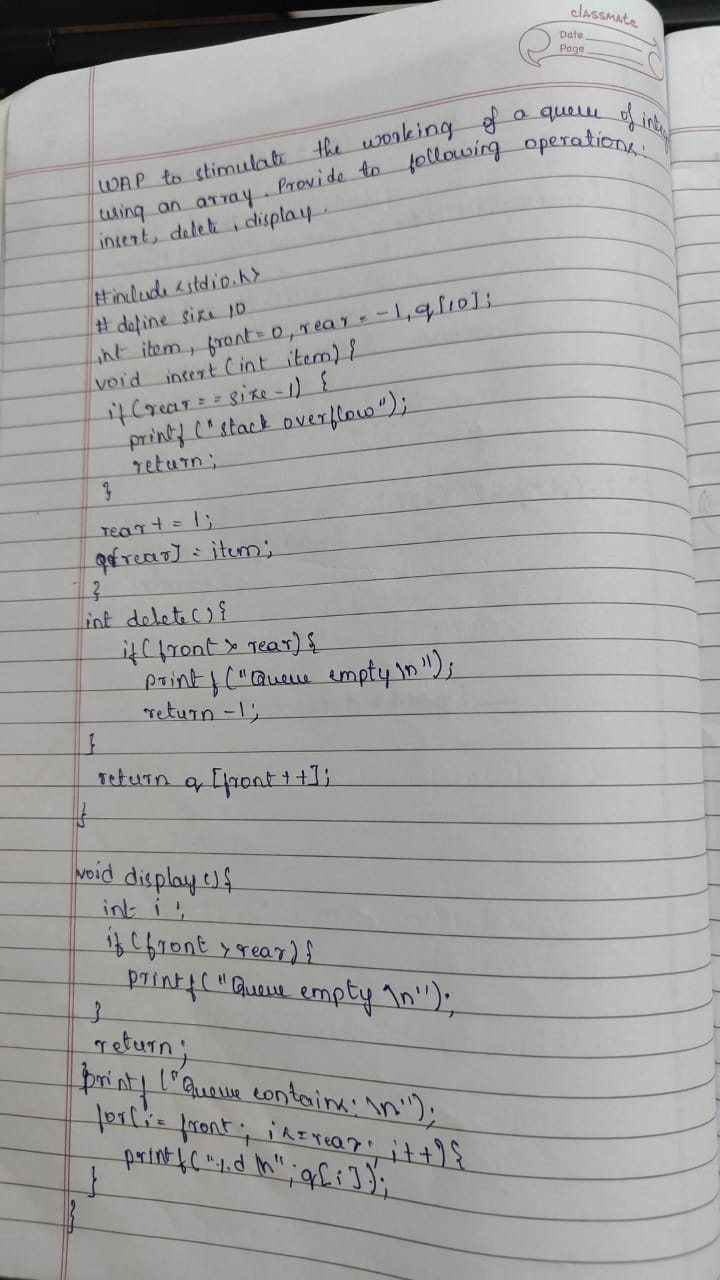 classmate
Date
Page
WAP to stimulate the working of a queue of
using an array. Provide to following operations.
insert, delete, display.
#include <stdio.h>
# define size 10
int item, front=0, rear=-1, q[10];
void insert (int item) {
if (rear == size-1) {
printf ("stack overflow");
return;
}
rear+=1;
q[rear] = item;
}
int delete() {
if (front > rear) {
printf ("Queue empty \n");
return -1;
}
return q [front++];
}
void display() {
int i;
if (front > rear) {
printf ("Queue empty \n");
}
return;
printf ("Queue contains: \n");
for(i= front; i<=rear; i++) {
printf ("%d \n"; q[i]);
}
}